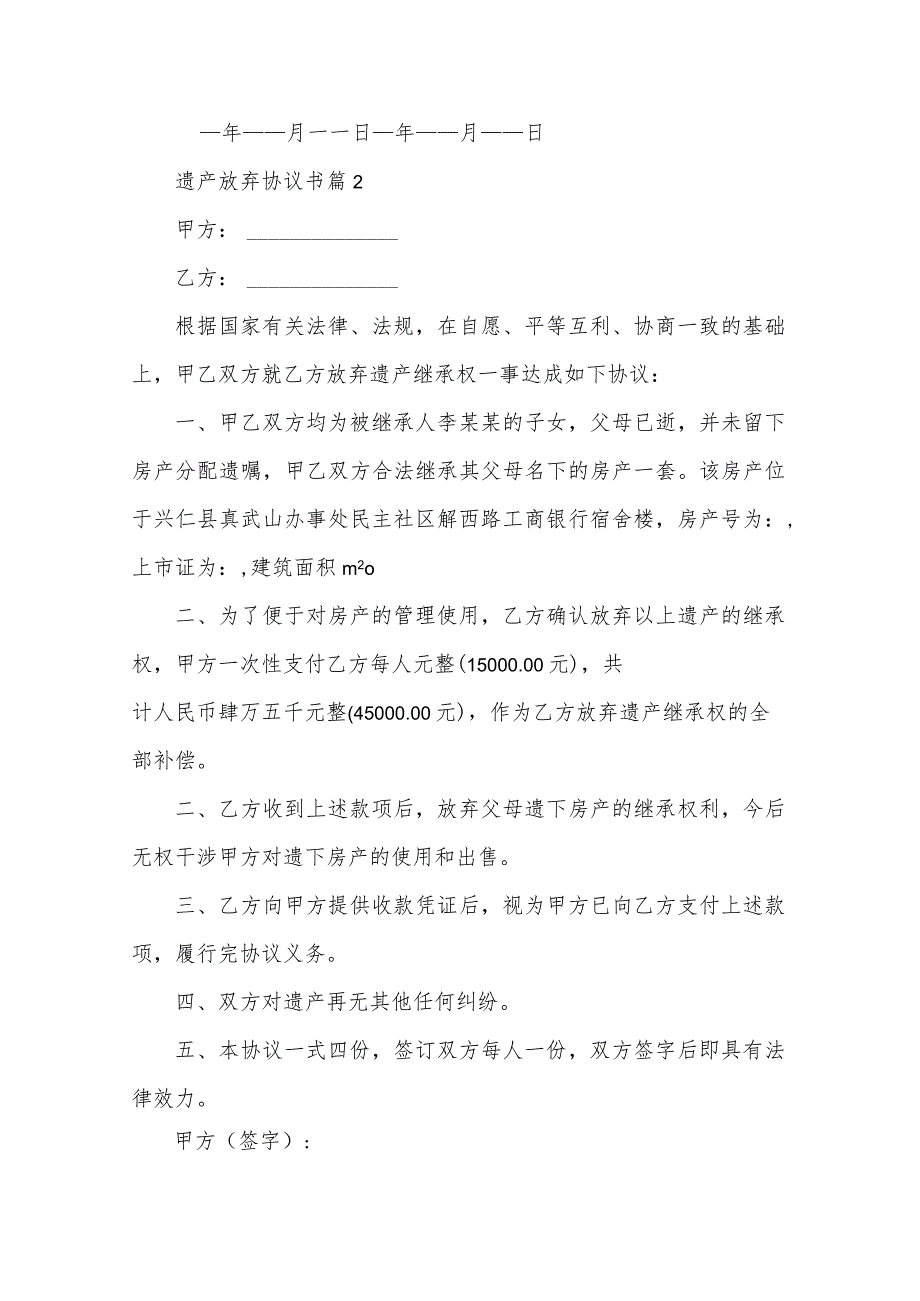 —年——月一一日—年——月——日
遗产放弃协议书篇2
甲方： ______________
乙方： ______________
根据国家有关法律、法规，在自愿、平等互利、协商一致的基础
上，甲乙双方就乙方放弃遗产继承权一事达成如下协议：
一、甲乙双方均为被继承人李某某的子女，父母已逝，并未留下
房产分配遗嘱，甲乙双方合法继承其父母名下的房产一套。该房产位
于兴仁县真武山办事处民主社区解西路工商银行宿舍楼，房产号为：,
上市证为：,建筑面积m²o
二、为了便于对房产的管理使用，乙方确认放弃以上遗产的继承
权，甲方一次性支付乙方每人元整(15000.00元)，共
计人民币肆万五千元整(45000.00元)，作为乙方放弃遗产继承权的全
部补偿。
二、乙方收到上述款项后，放弃父母遗下房产的继承权利，今后
无权干涉甲方对遗下房产的使用和出售。
三、乙方向甲方提供收款凭证后，视为甲方已向乙方支付上述款
项，履行完协议义务。
四、双方对遗产再无其他任何纠纷。
五、本协议一式四份，签订双方每人一份，双方签字后即具有法
律效力。
甲方（签字）: